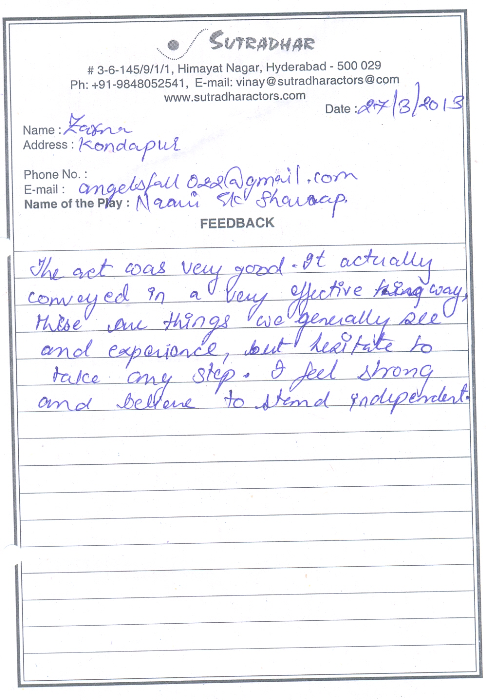 SUTRADHAR
# 3-6-145/9/1/1, Himayat Nagar, Hyderabad - 500 029
Ph: +91-9848052541, E-mail: vinay@sutradharactors@com
www.sutradharactors.com
Date : 27/3/2013
Name :
Address : Kondapur
Phone No. :
E-mail : angelsfall022@gmail.com
Name of the Play : Naari Sk
FEEDBACK
The act was very good. It actually
conveyed in a very effective way,
these are things we generally see
and experience, but hesitate to
take any step. I feel strong
and believe to stand independent.